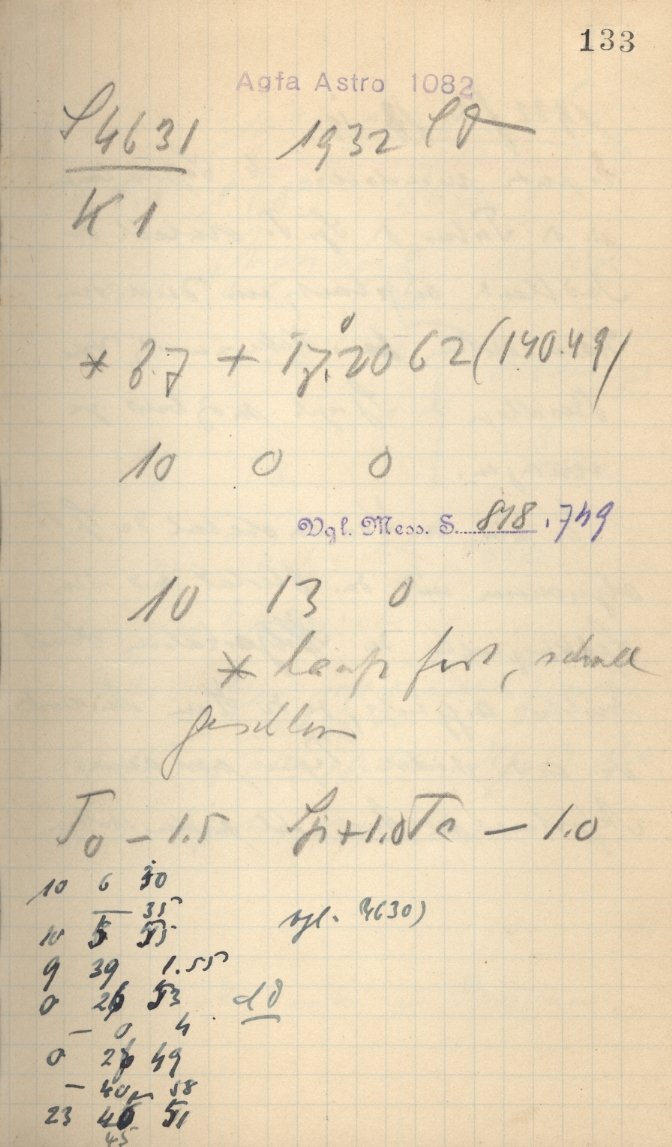 133
Agfa Astro 1082
S4631 1932
K 1
* 8.7 + 17.°2062 (140.49)
10 0 0
Vgl. Mess. S. 818.749
10 13 0
* lauft fort, schnell
To – 1.5 Sp+1.0 Ta – 1.0
10 6 30
– 35
10 5 55
vgl. 4630)
9 39 1.55
0 26 53
– 0 4
0 26 49
– 40 58
23 45 51
45